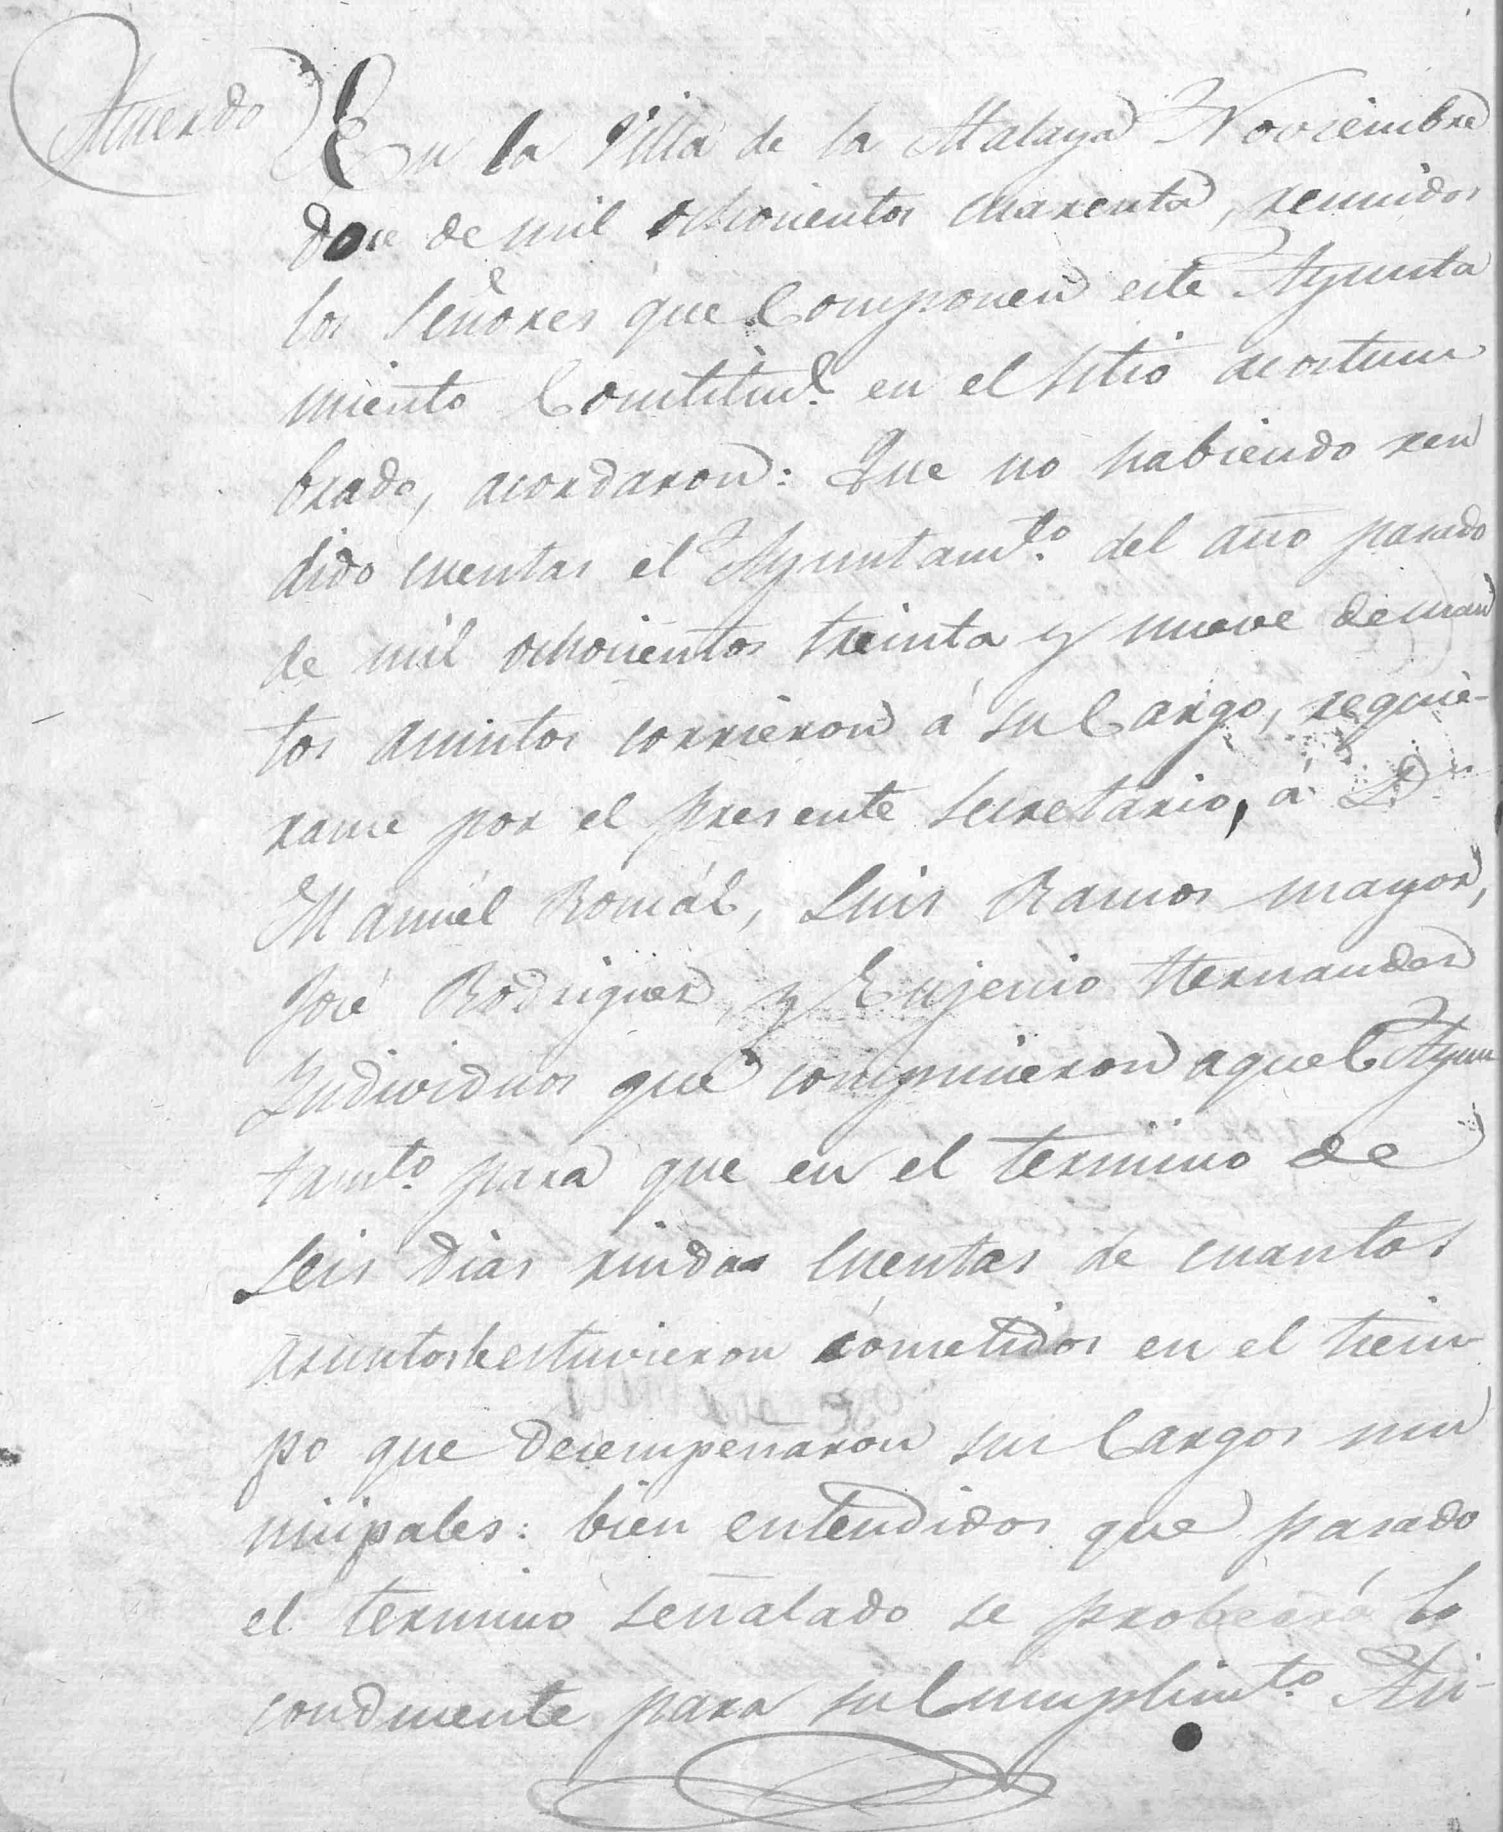 Acuerdo
En la Villa de la Atalaya Noviembre
doce de mil ochocientos cuarenta, reunidos
los Señores que Componen este Ayunta
miento Constituc.l en el sitio acostum
brado, acordaron: Que no habiendo ren
dido cuentas el Ayuntam.to del año pasado
de mil ochocientos treinta y nueve de cuan
tos asuntos corrieron á su Cargo, requie-
rase por el presente Secretario, á D.n
Manuel Romál, Luis Ramos mayor,
José Rodriguez, y Eujenio Hernandez
Individuos que compusieron aquel Ayun
tam.to para que en el termino de
seis dias rindan Cuentas de cuantos
asuntos le estuvieron cometidos en el tiem
po que desempeñaron sus Cargos mu
nicipales: bien entendidos que pasado
el termino señalado se probeerá lo
conducente para su Cumplim.to Asi-